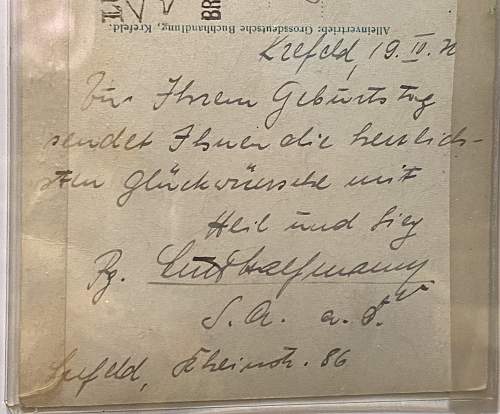 BR
Alleinvertrieb: Grossdeutsche Buchhandlung, Krefeld.
Krefeld, 19. IV.
Zu Ihrem Geburtstag
sendet Ihnen die herzlich-
sten Glückwünsche mit
Heil und Sieg
Pg. Halfmann
S. A. a. D.
Krefeld, Rheinstr. 86